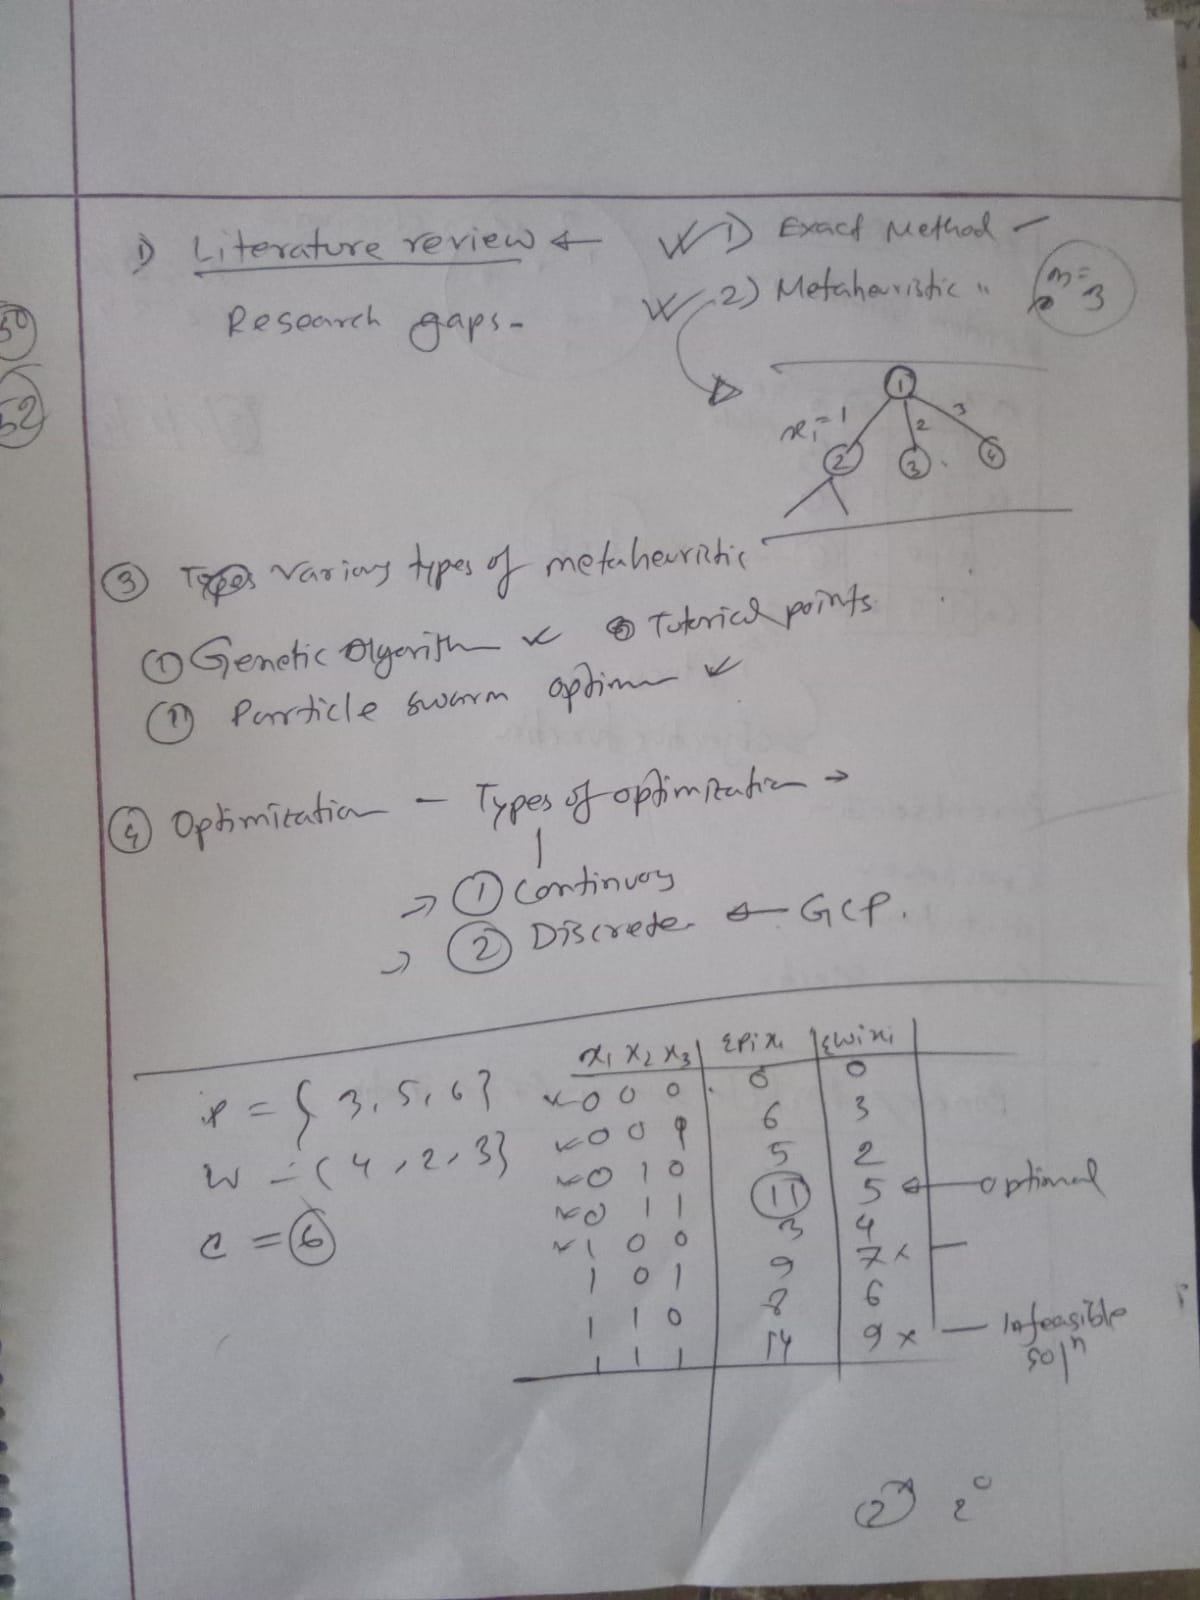 1) Literature review ←
Research gaps -
1) Exact Method -
2) Metaheuristic "
m = 3
1
x₁=1 2 3
2 3 4
③ Various types of metaheuristic
① Genetic Algorithm
Tutorial points
⑪ Particle swarm optim
④ Optimization - Types of optimization →
→ ① Continuous
→ ② Discrete ← GCP.
p = { 3, 5, 6 }
w = { 4, 2, 3 }
c = 6
x₁ x₂ x₃ Σpᵢxᵢ Σwᵢxᵢ
0 0 0 0 0
0 0 1 6 3
0 1 0 5 2
0 1 1 11 5 ← optimal
1 0 0 3 4
1 0 1 9 7 x
1 1 0 8 6
1 1 1 14 9 x — Infeasible solⁿ
2ⁿ
52